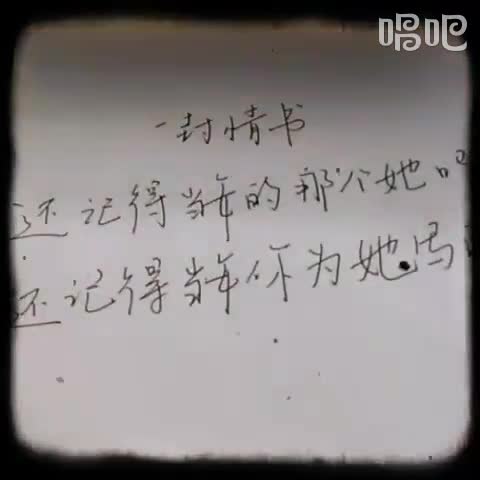 唱吧
一封情书
还记得当年的那个她吗
还记得当年你为她写